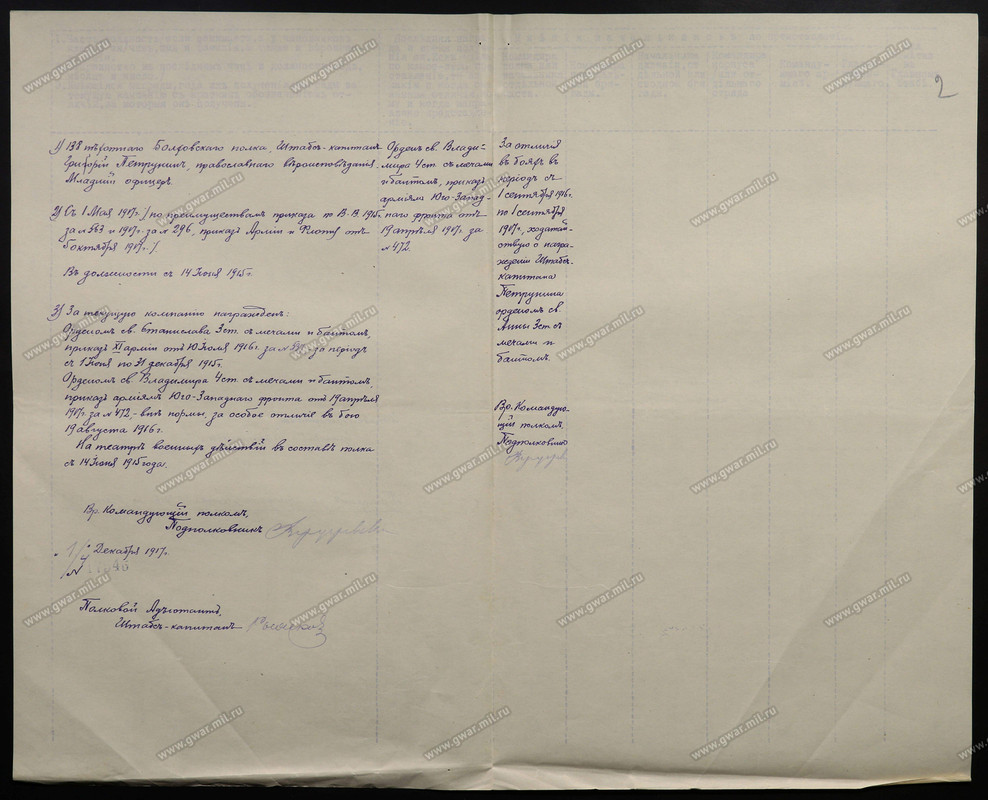 2
1) 138 пѣхотнаго Болховскаго полка, Штабсъ-капитанъ
Григорій Петрунинъ, православнаго вѣроисповѣданія.
Младшій офицеръ.
2) Съ 1 Мая 1917г. /по преимуществамъ приказа по В.В. 1915г.
за № 563 и 1917г. за № 296, приказъ Арміи и Флоту отъ
6 октября 1917г./.
Въ должности съ 14 Іюня 1915г.
3) За текущую компанію награжденъ:
Орденомъ св. Станислава 3 ст. съ мечами и бантомъ,
приказъ XI арміи отъ 10 Іюля 1916г. за № за періодъ
съ 1 Іюня по 31 декабря 1915г.
Орденомъ св. Владимира 4 ст. съ мечами и бантомъ,
приказъ арміямъ Юго-Западнаго фронта отъ 19 апрѣля
1917г. за № 472, - внѣ нормы, за особое отличіе въ бою
19 августа 1916г.
На театрѣ военныхъ дѣйствій въ составѣ полка
съ 14 Іюня 1915 года.
Вр. Командующій полкомъ,
Подполковникъ
Декабря 1917г.
№
Полковой Адъютантъ,
Штабсъ-капитанъ
Орденъ св. Влади-
мира 4 ст. съ мечами
и бантомъ, приказъ
арміямъ Юго-Запад-
наго фронта отъ
19 апрѣля 1917г. за
№ 472.
За отличія
въ бояхъ въ
періодъ съ
1 сентября 1916г.
по 1 сентября
1917г., ходатай-
ствую о награ-
жденіи Штабсъ-
капитана
Петрунина
орденомъ св.
Анны 3 ст. съ
мечами и
бантомъ.
Вр. Командую-
щій полкомъ,
Подполковникъ
www.gwar.mil.ru